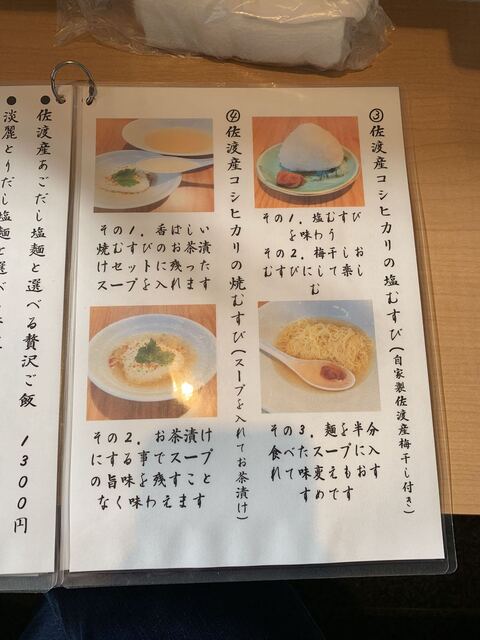 ③佐渡産コシヒカリの塩むすび(自家製佐渡産梅干し付き)
その1. 塩むすび
を味わう
その2. 梅干しお
むすびにして楽し
む
その3. 麺を半分
食べたスープにお
れて味変えもおす
すめです
④佐渡産コシヒカリの焼むすび(スープを入れてお茶漬け)
その1. 香ばしい
焼むすびのお茶漬
けセットに残った
スープを入れます
その2. お茶漬け
にする事でスープ
の旨味を残すこと
なく味わえます
●佐渡産あごだし塩麺と選べる贅沢ご飯 1300円
●淡麗とりだし塩麺と選べ